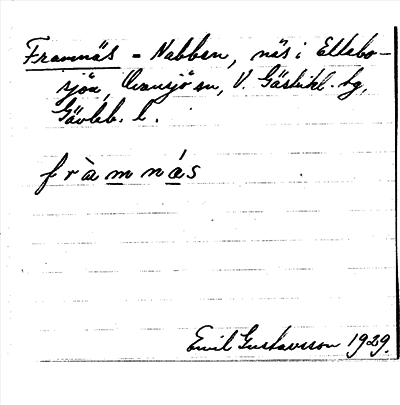 Framnäs = Nabben, näs i Ottebo-
sjön, Ovansjö sn, V. Gästrikl. hg,
Gävleb. l.
fràmnás
Emil Gustavsson 1929.